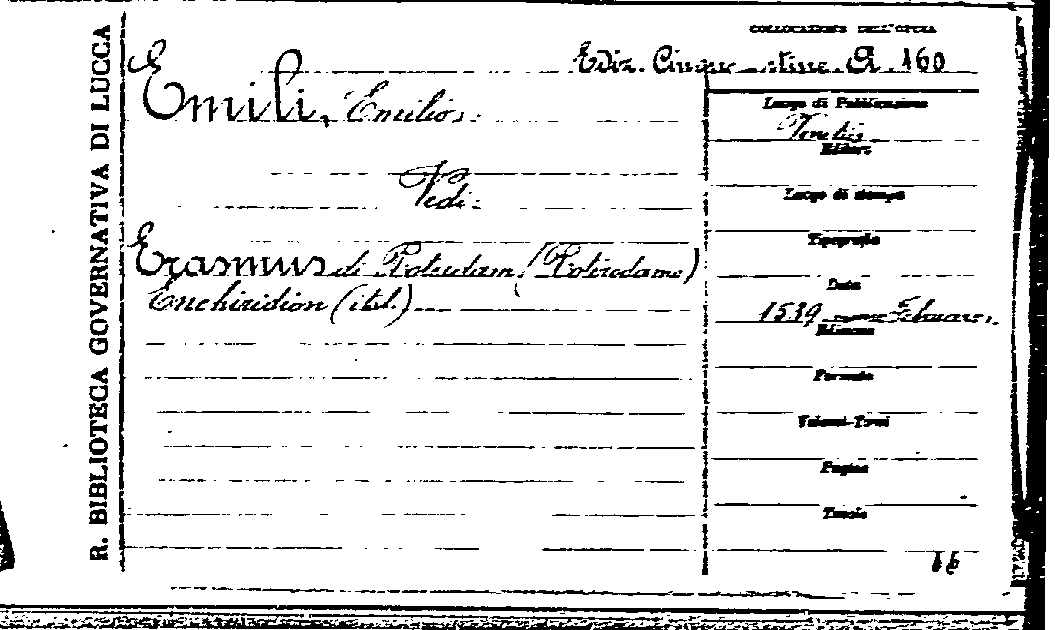 R. BIBLIOTECA GOVERNATIVA DI LUCCA
COLLOCAZIONE DELL'OPERA
Ediz. Cinquecentine. A. 160
Emili, Emilio.
Vedi:
Erasmus di Roterdam (Roterodamo)
Enchiridion (ital.)
Luogo di Pubblicazione
Venetia
Editore
Luogo di stampa
Tipografia
Data
1539 Februario.
Edizione
Formato
Volumi-Tomi
Pagine
Tavole